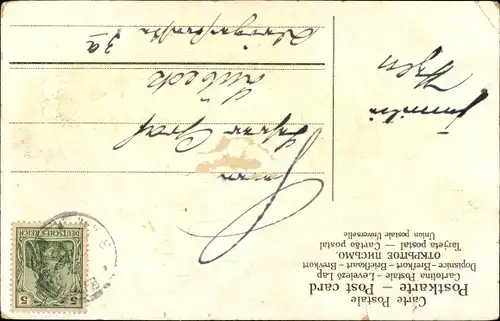 Carte Postale
Postkarte — Post card
Cartolina Postale — Levelező Lap
Dopisnice — Brefkort — Briefkaart — Brevkort
ОТКРЫТОЕ ПИСЬМО.
Tarjeta postal — Cartão postal
Union postale Universelle
DEUTSCHES REICH
5 5
Herrn
Graf
Lübeck
3a
Familie